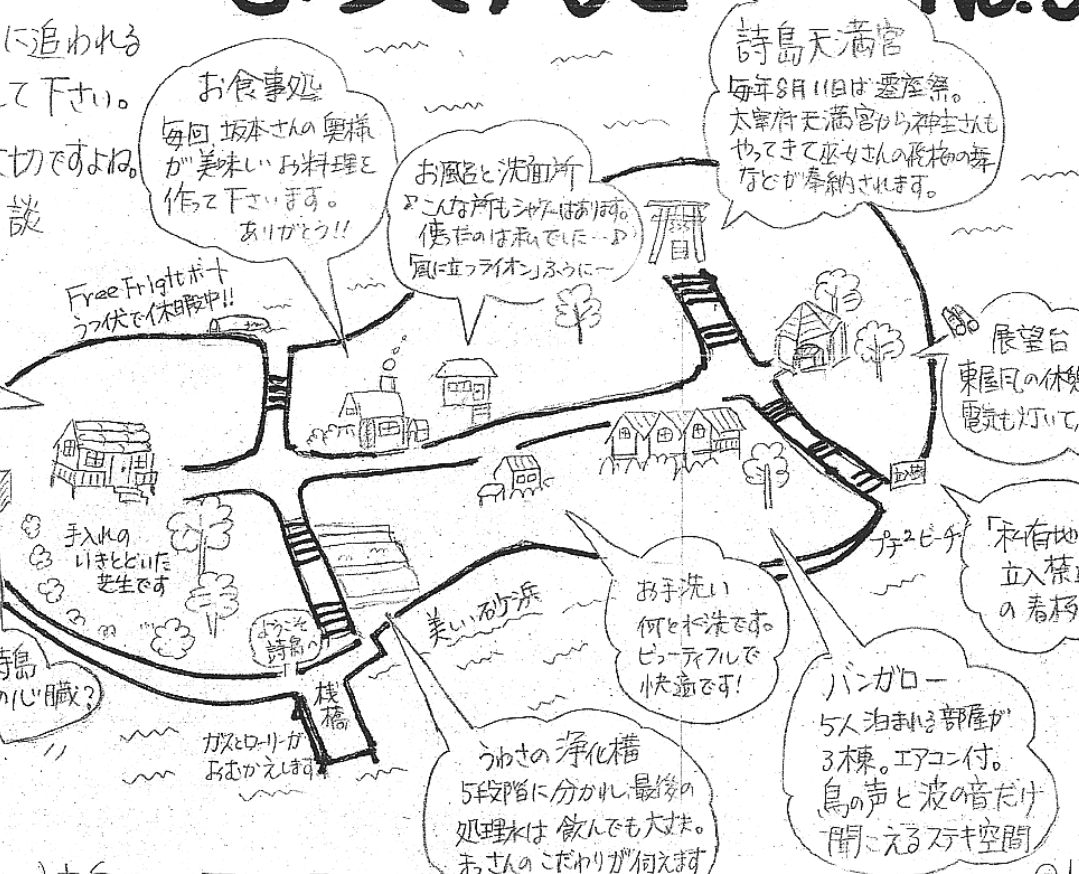 No.
に追われる
て下さい。
切ですよね。
談
お食事処
毎回 坂本さんの奥様
が美味しいお料理を
作って下さいます。
ありがとう!!
お風呂と洗面所
♪こんな所もシャワーはあります。
使ったのは私でした…♪
「風に立つライオン」ふうに〜
詩島天満宮
毎年8月11日は霊座祭。
太宰府天満宮から神主さんも
やってきて巫女さんの飛梅の舞
などが奉納されます。
Free Frightボート
うつ伏で休暇中!!
展望台
東屋風の休
電気も灯いて
手入れの
いきとどいた
芝生です
ようこそ
詩島へ
美しい砂浜
プチ2ビーチ
「私有地
立入禁
の看板
お手洗い
何と水洗です。
ビューティフルで
快適です!
詩島
の心臓?
桟橋
ガスとローリーが
おむかえします
うわさの浄化槽
5段階に分かれ、最後の
処理水は飲んでも大丈夫。
まっさんのこだわりが伺えます
バンガロー
5人泊まれる部屋が
3棟。エアコン付。
鳥の声と波の音だけ
聞こえるステキ空間